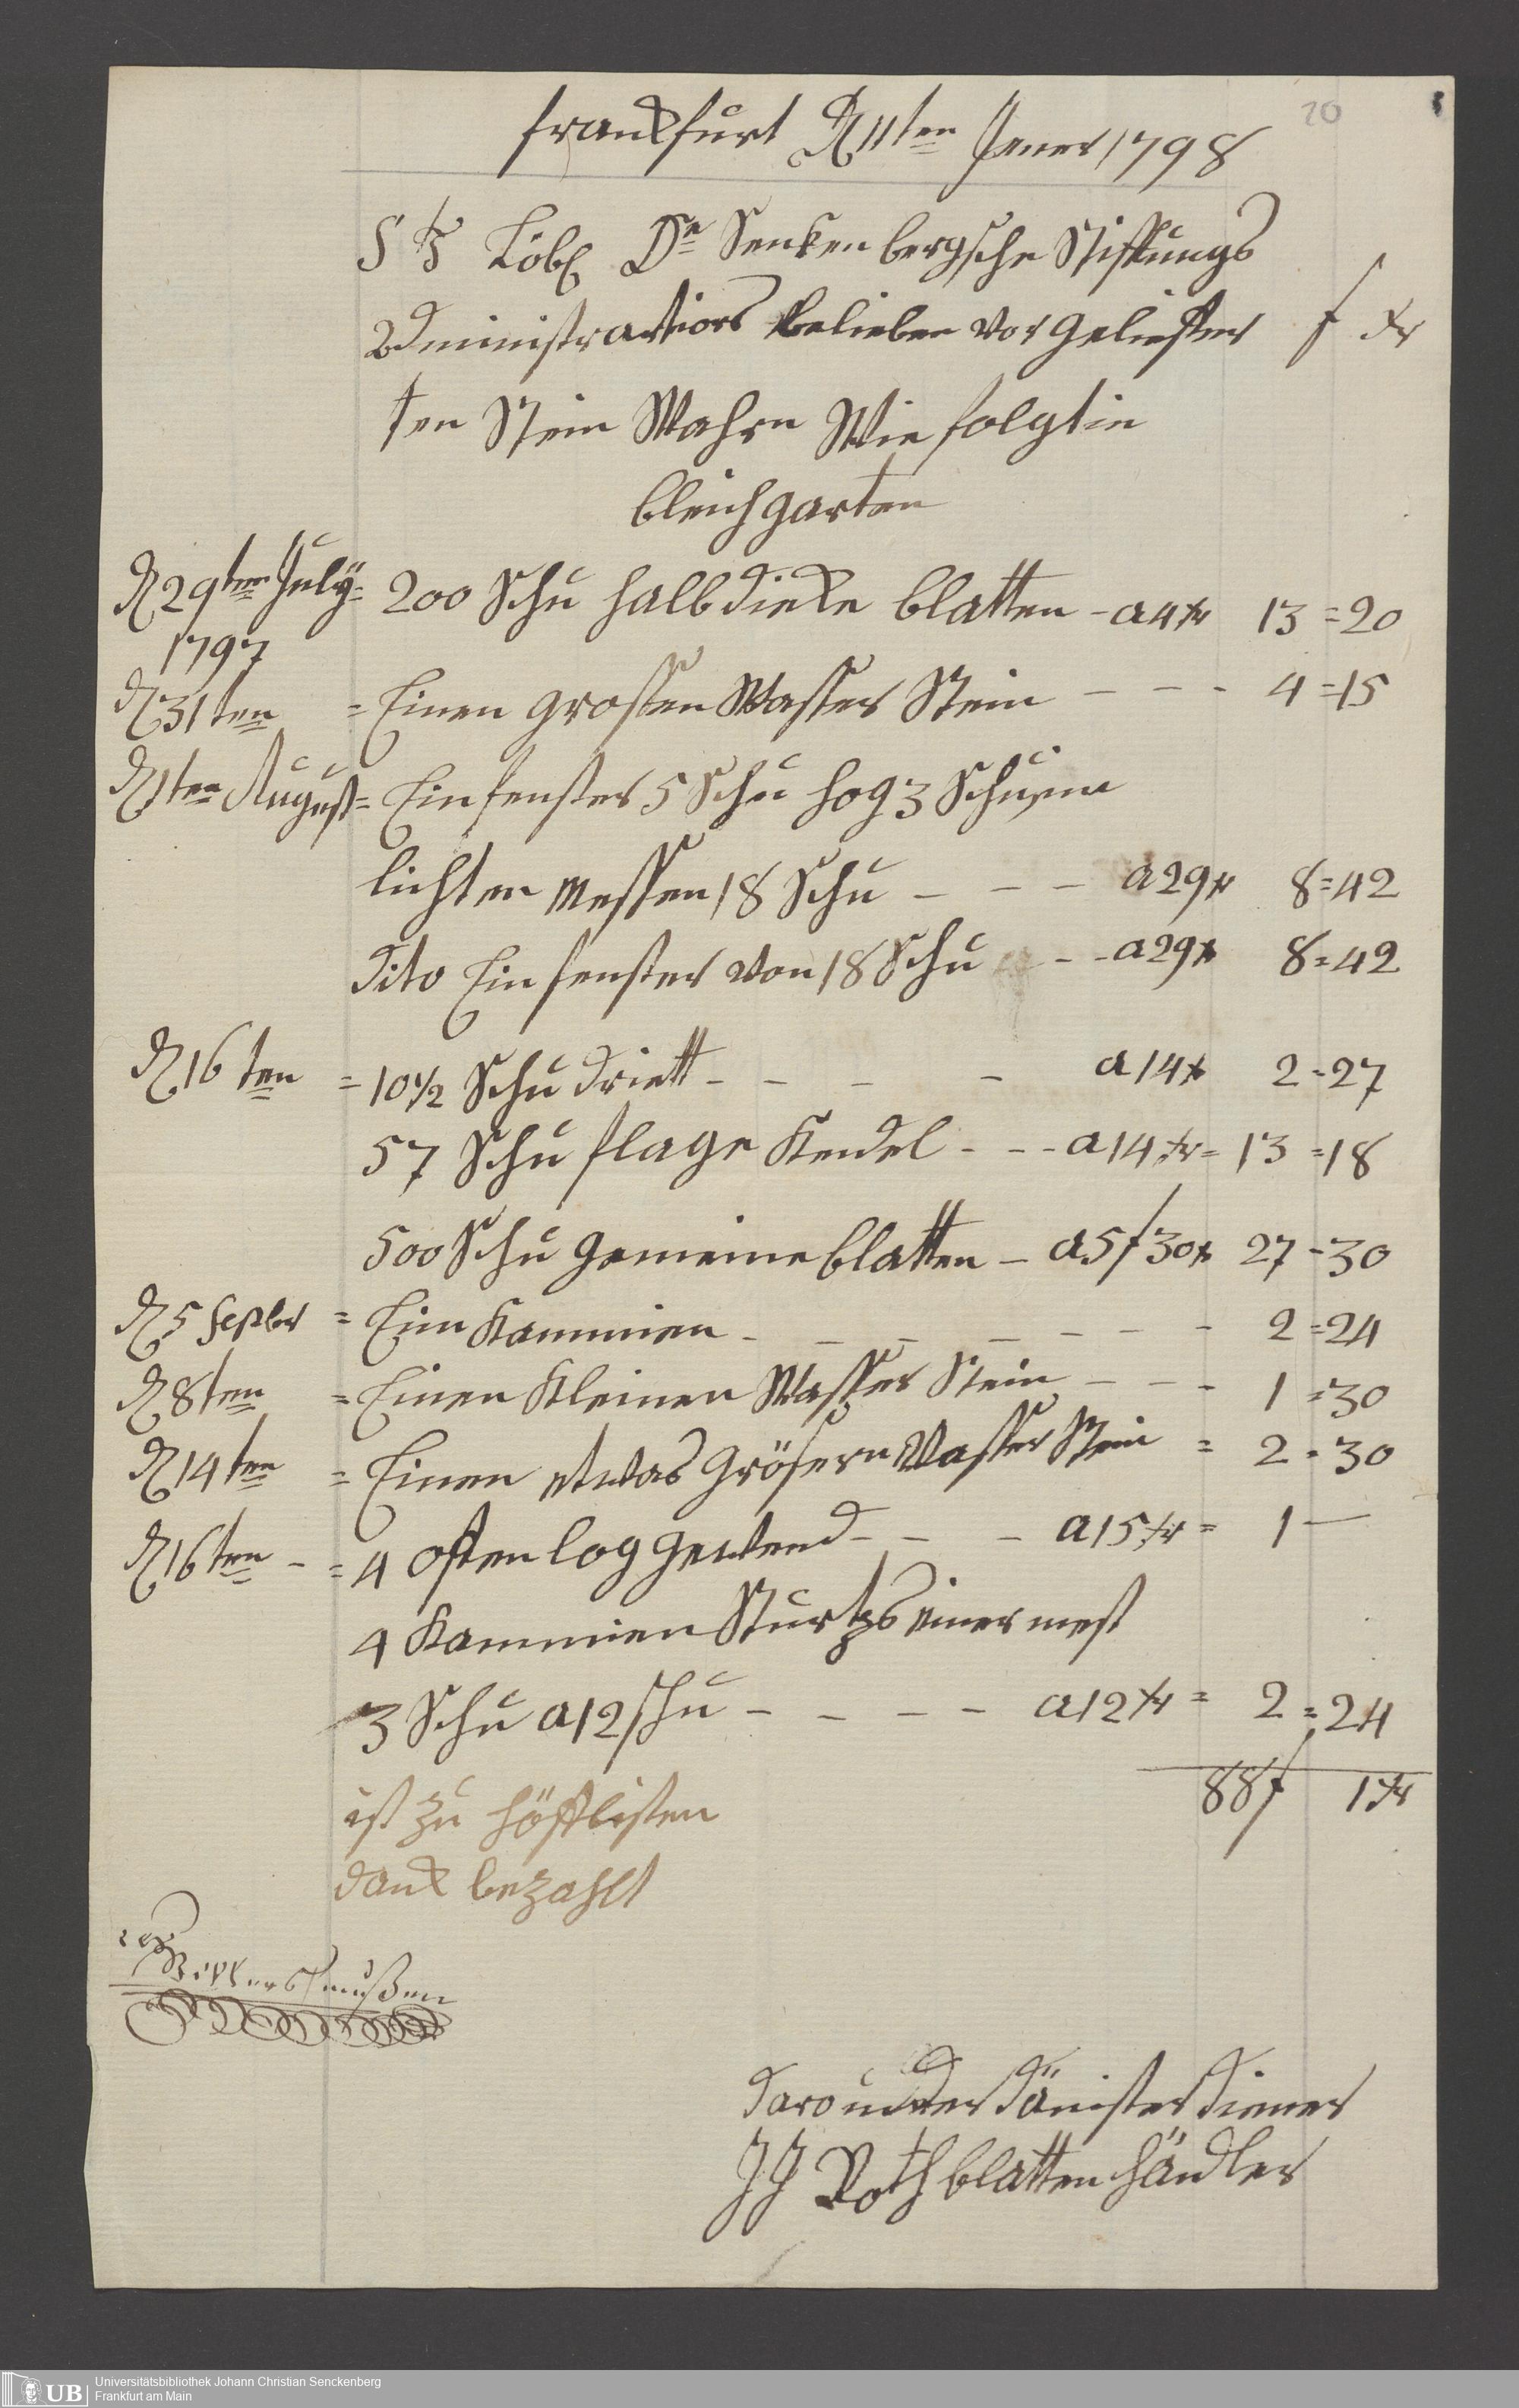 20
frankfurt D 11ten Jener 1798
S T Löbl Dr Senkenbergsche Stiftungs
Administrations belieben vor gelieffer f xr
ten Stein Wahrn Wie folgt in
bleichgarten
D 29ten July = 200 Schu halb dicke blatten - a 4 xr 13 = 20
1797
D 31ten = Einen grossen Wasser Stein - - - 4 = 15
D 1ten August = Ein fenster 5 Schu hog 3 Schu im
lichten messen 18 Schu - - - a 29 xr 8 = 42
Dito Ein fenster von 18 Schu - - a 29 xr 8 = 42
D 16ten = 10 1/2 Schu driett - - - - a 14 xr 2 = 27
57 Schu flage Kendel - - - a 14 xr = 13 = 18
500 Schu gemeine blatten - a 5 f 30 xr 27 - 30
D 5 Sepbr = Eim Kammien - - - - - - - 2 = 24
D 8ten = Einen Kleinen Wasser Stein - - - 1 = 30
D 14ten = Einen etwas grösern Wasser Stein = 2 = 30
D 16ten - = 4 offen log gewend - - - a 15 xr = 1 —
4 Kammien Sturtzs einer mest
3 Schu a 12 schu - - - - a 12 xr = 2 = 24
88 f 1 xr
ist zu höfflisten
dank bezahlt
dero under dänister diener
JJ Roth blatten händler
UB Universitätsbibliothek Johann Christian Senckenberg
Frankfurt am Main